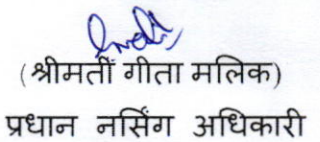 (श्रीमतीं गीता मलिक)
प्रधान नर्सिंग अधिकारी